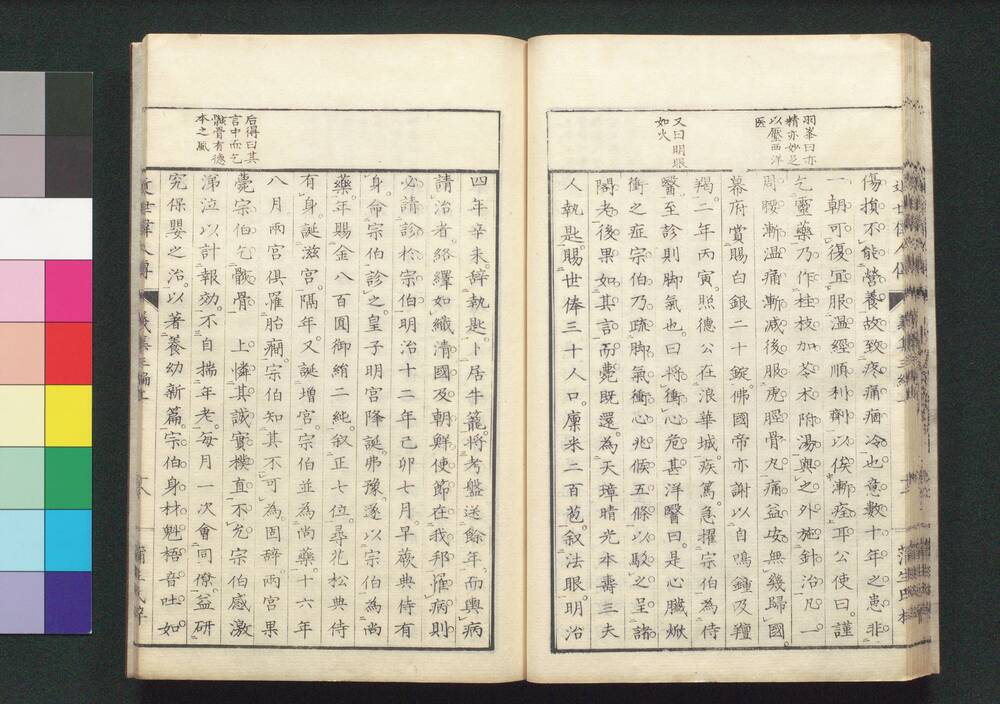 羽峯曰亦
精亦妙足
以壓西洋
医
又曰明眼
如火
傷損不能營養故致疼痛痼冷也意數十年之患非
一朝可復宜服温經順利劑以俟漸痊耳公使曰謹
乞靈藥乃作桂枝加苓朮附湯與之外施針治凡一
周腰漸温痛漸減後服虎脛骨丸痛益安無幾歸國
幕府賞賜白銀二十錠佛國帝亦謝以自鳴鍾及氊
羯二年丙寅照德公在浪華城疾篤急擢宗伯為侍
醫至診則脚氣也曰將衝心危甚洋醫曰是心臟焮
衝之症宗伯乃疏脚氣衝心兆候五條以駁之呈諸
閣老後果如其言而薨既還為天璋晴光本壽三夫
人執匙賜世俸三十人口廩米二百苞叙法眼明治
后得曰其
言中而乞
骸骨有德
本之風
四年辛未辭執匙卜居牛籠將考盤送餘年而輿病
請治者絡繹如織清國及朝鮮使節在我邦罹病則
必請診於宗伯明治十二年己卯七月早蕨典侍有
身命宗伯診之皇子明宮降誕弗豫遂以宗伯為尚
藥年賜金八百圓御綃二純叙正七位尋花松典侍
有身誕滋宮隔年又誕增宮宗伯並為尚藥十六年
八月兩宮俱罹胎癇宗伯知其不可為固辞兩宮果
薨宗伯乞骸骨 上憐其誠實樸直不允宗伯感激
涕泣以計報効不自揣年老每月一次會同僚益研
究保嬰之治以著養幼新篇宗伯身材魁梧音吐如